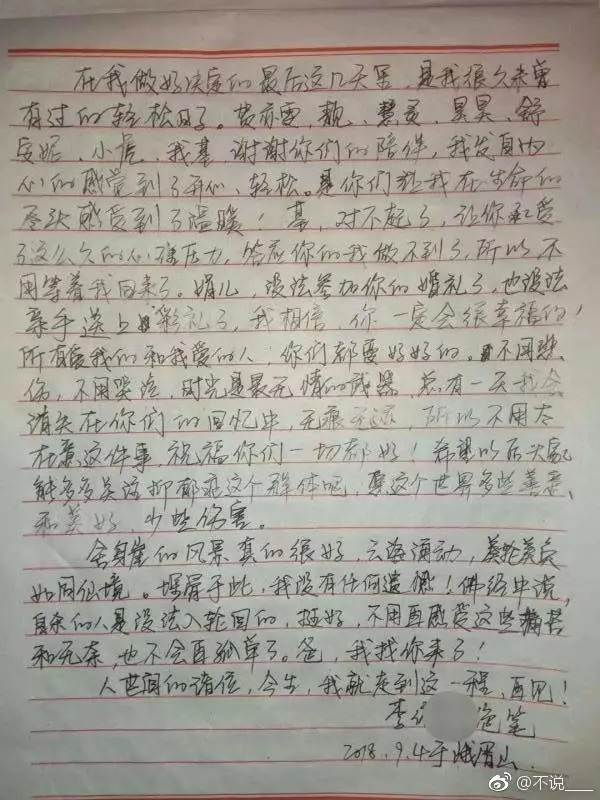 在我做好决定的最后这几天里,是我很久未曾
有过的轻松日子。黄亦雯,靓、慧灵、昊昊、舒
安妮、小虎、我基,谢谢你们的陪伴,我发自内
心的感觉到了开心、轻松。是你们让我在生命的
尽头感受到了温暖!基,对不起了,让你承受
了这么久的心理压力,答应你的我做不到了,所以不
用等着我回来了。娟儿,没法参加你的婚礼了,也没法
亲手送上彩礼了,我相信,你一定会很幸福的!
所有爱我的和我爱的人,你们都要好好的。不用悲
伤,不用哭泣,时光是最无情的武器,总有一天我会
消失在你们的回忆中,无痕无迹,所以不用太
在意这件事,祝福你们一切都好!希望以后大家
能多多关注抑郁症这个群体吧,愿这个世界多些善意、
和美好,少些伤害。
舍身崖的风景真的很好,云海涌动,
如同仙境。埋骨于此,我没有任何遗憾!佛经中说,
自杀的人是没法入轮回的,挺好,不用再感受这些痛苦
和无奈,也不会再孤单了。爸,我找你来了!
人世间的诸位,今生,我就走到这一程,再见!
李 绝笔
2018.9.4于峨眉山
@不说___